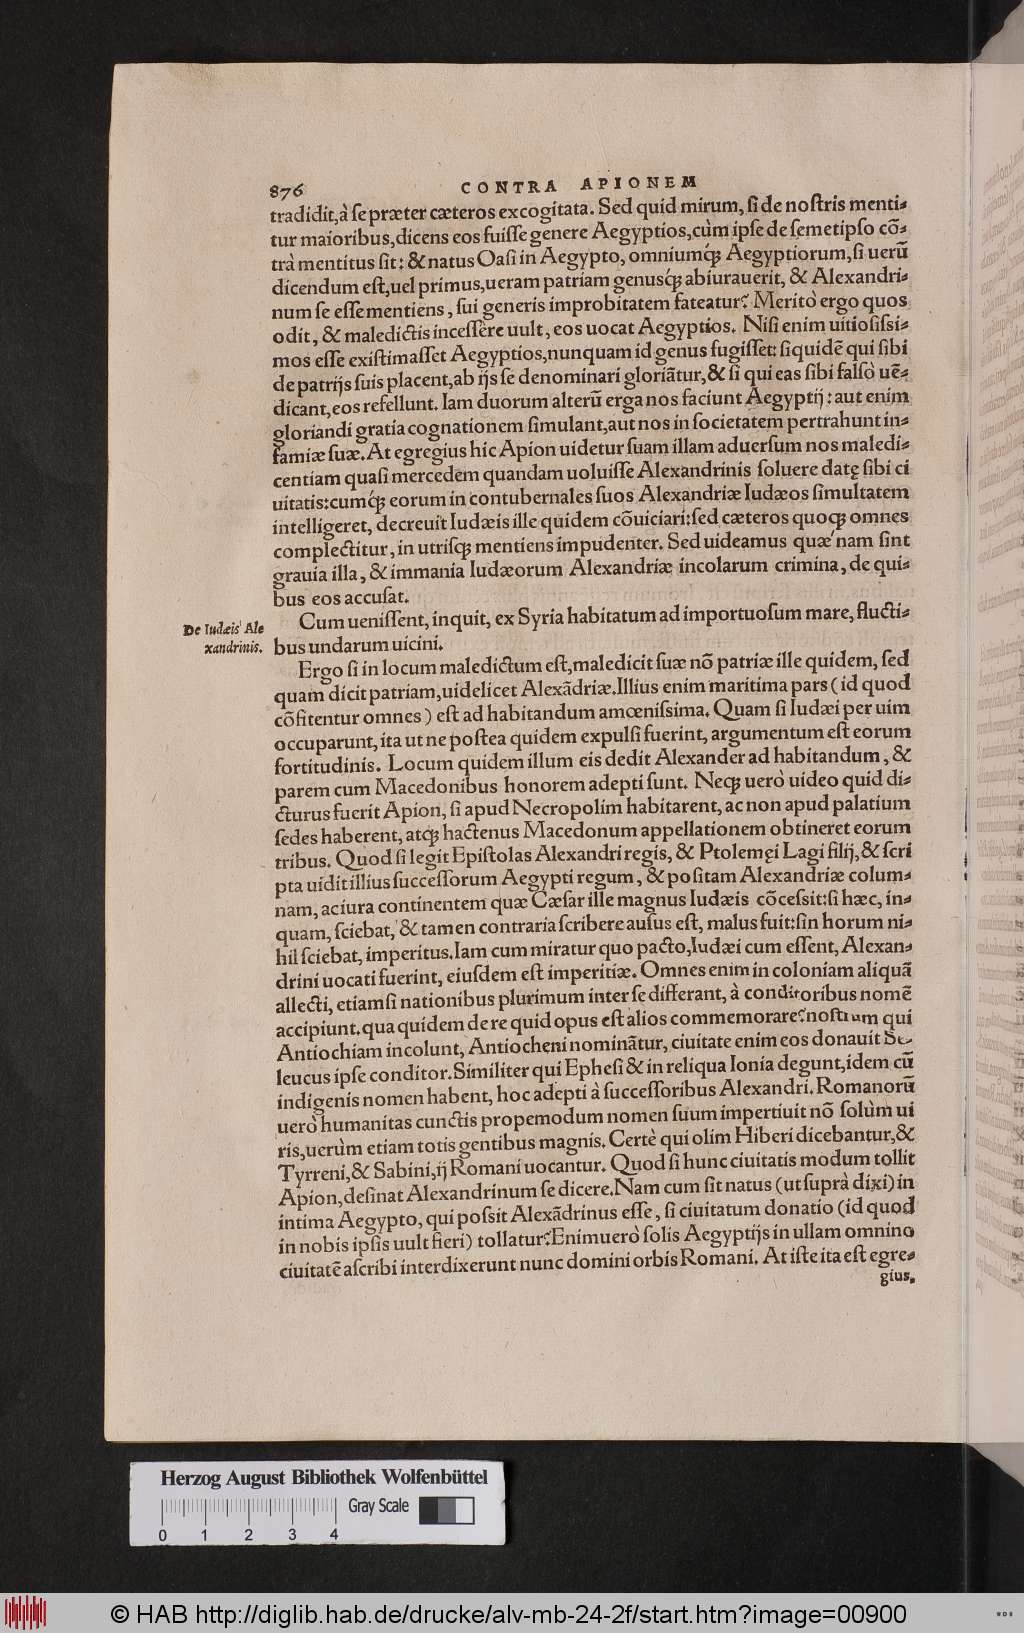 876 CONTRA APIONEM
tradidit,à ſe præter cæteros excogitata. Sed quid mirum, ſi de noſtris menti-
tur maioribus,dicens eos fuiſſe genere Aegyptios,cùm ipſe de ſemetipſo cõ-
trà mentitus ſit: & natus Oaſi in Aegypto, omniumq́ꝫ Aegyptiorum,ſi uerũ
dicendum eſt,uel primus,ueram patriam genusq́ꝫ abiurauerit, & Alexandri-
num ſe eſſe mentiens, ſui generis improbitatem fateatur? Meritò ergo quos
odit, & maledictis inceſſere uult, eos uocat Aegyptios. Niſi enim uitioſiſsi-
mos eſſe exiſtimaſſet Aegyptios,nunquam id genus fugiſſet: ſiquidẽ qui ſibi
de patrijs ſuis placent,ab ijs ſe denominari gloriãtur,& ſi qui eas ſibi falſò uẽ-
dicant,eos refellunt. Iam duorum alterũ erga nos faciunt Aegyptij: aut enim
gloriandi gratia cognationem ſimulant,aut nos in ſocietatem pertrahunt in-
famiæ ſuæ. At egregius hic Apion uidetur ſuam illam aduerſum nos maledi-
centiam quaſi mercedem quandam uoluiſſe Alexandrinis ſoluere datę ſibi ci
uitatis:cumq́ꝫ eorum in contubernales ſuos Alexandriæ Iudæos ſimultatem
intelligeret, decreuit Iudæis ille quidem cõuiciari:ſed cæteros quoqꝫ omnes
complectitur, in utriſqꝫ mentiens impudenter. Sed uideamus quæ'nam ſint
grauia illa, & immania Iudæorum Alexandriæ incolarum crimina, de qui-
bus eos accuſat.
De Iudæis Ale
xandrinis.
Cum ueniſſent, inquit, ex Syria habitatum ad importuoſum mare, flucti-
bus undarum uicini.
Ergo ſi in locum maledictum eſt,maledicit ſuæ nõ patriæ ille quidem, ſed
quam dicit patriam,uidelicet Alexãdriæ.Illius enim maritima pars (id quod
cõfitentur omnes) eſt ad habitandum amœniſsima. Quam ſi Iudæi per uim
occuparunt,ita ut ne poſtea quidem expulſi fuerint, argumentum eſt eorum
fortitudinis. Locum quidem illum eis dedit Alexander ad habitandum, &
parem cum Macedonibus honorem adepti ſunt. Neqꝫ uerò uideo quid di-
cturus fuerit Apion, ſi apud Necropolim habitarent, ac non apud palatium
ſedes haberent, atqꝫ hactenus Macedonum appellationem obtineret eorum
tribus. Quod ſi legit Epiſtolas Alexandri regis, & Ptolemęi Lagi filij,& ſcri
pta uidit illius ſucceſſorum Aegypti regum, & poſitam Alexandriæ colum-
nam, ac iura continentem quæ Cæſar ille magnus Iudæis cõceſsit:ſi hæc, in-
quam, ſciebat, & tamen contraria ſcribere auſus eſt, malus fuit:ſin horum ni-
hil ſciebat, imperitus.Iam cum miratur quo pacto,Iudæi cum eſſent, Alexan-
drini uocati fuerint, eiuſdem eſt imperitiæ. Omnes enim in coloniam aliquã
allecti, etiamſi nationibus plurimum inter ſe differant, à conditoribus nomẽ
accipiunt.qua quidem de re quid opus eſt alios commemorare?noſtrum qui
Antiochiam incolunt, Antiocheni nominãtur, ciuitate enim eos donauit Se-
leucus ipſe conditor.Similiter qui Epheſi & in reliqua Ionia degunt,idem cũ
indigenis nomen habent, hoc adepti à ſucceſſoribus Alexandri. Romanorũ
uerò humanitas cunctis propemodum nomen ſuum impertiuit nõ ſolùm ui
ris,uerùm etiam totis gentibus magnis. Certè qui olim Hiberi dicebantur,&
Tyrreni,& Sabini,ij Romani uocantur. Quod ſi hunc ciuitatis modum tollit
Apion,deſinat Alexandrinum ſe dicere.Nam cum ſit natus (ut ſuprà dixi) in
intima Aegypto, qui poſsit Alexãdrinus eſſe, ſi ciuitatum donatio (id quod
in nobis ipſis uult fieri) tollatur?Enimuerò ſolis Aegyptijs in ullam omnino
ciuitatẽ aſcribi interdixerunt nunc domini orbis Romani. At iſte ita eſt egre-
gius,
Herzog August Bibliothek Wolfenbüttel
Gray Scale
0 1 2 3 4
© HAB http://diglib.hab.de/drucke/alv-mb-24-2f/start.htm?image=00900